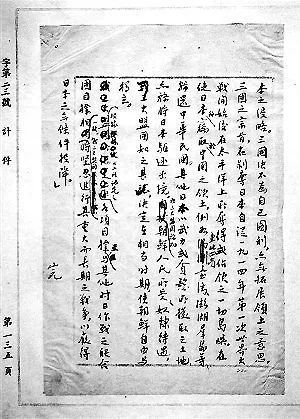 本之侵略。三國決不為自己圖利,亦無拓展領土之意思。
三國之宗旨,在剝奪日本自從一九一四年第一次世界大
戰開始後在太平洋上所奪得或佔領之一切島嶼;在
使日本所竊取中國之領土,例如 臺灣、澎湖羣島等,
歸還中華民國;其他日本以武力或貪慾所攫取之土地,
亦務將日本驅逐出境; 朝鮮人民所受 奴隸待遇
大盟國 決定在相當時期使朝鮮自由與
獨立。
各項目標與其他對日作戰之聯合
國目標 堅忍進行其重大而長期之戰爭,以獲得
日本之無條件投降。
字第 號 計 件
第一三五頁